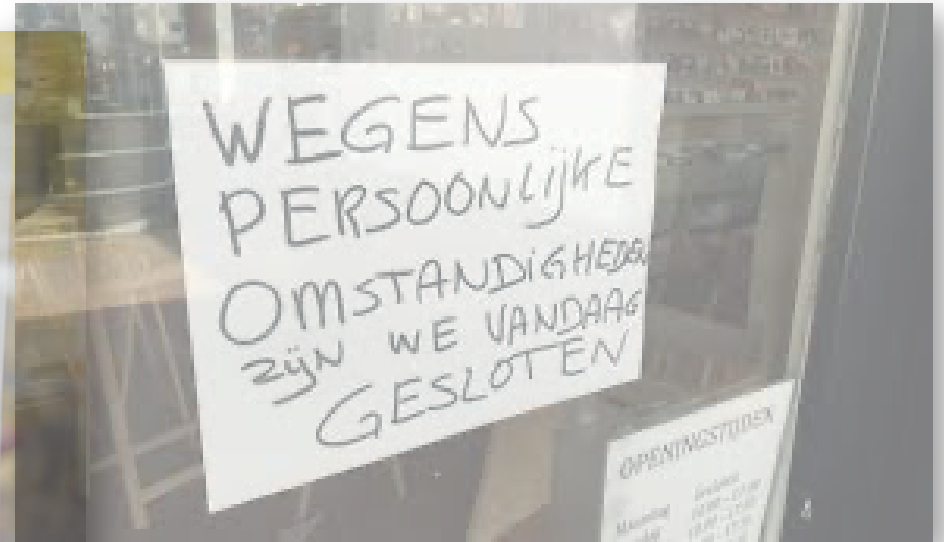 WEGENS
PERSOONLijKE
OMSTANDiGHEDEN
ZijN WE VANDAAG
GESLOTEN
OPENINGSTIJDEN
Maandag